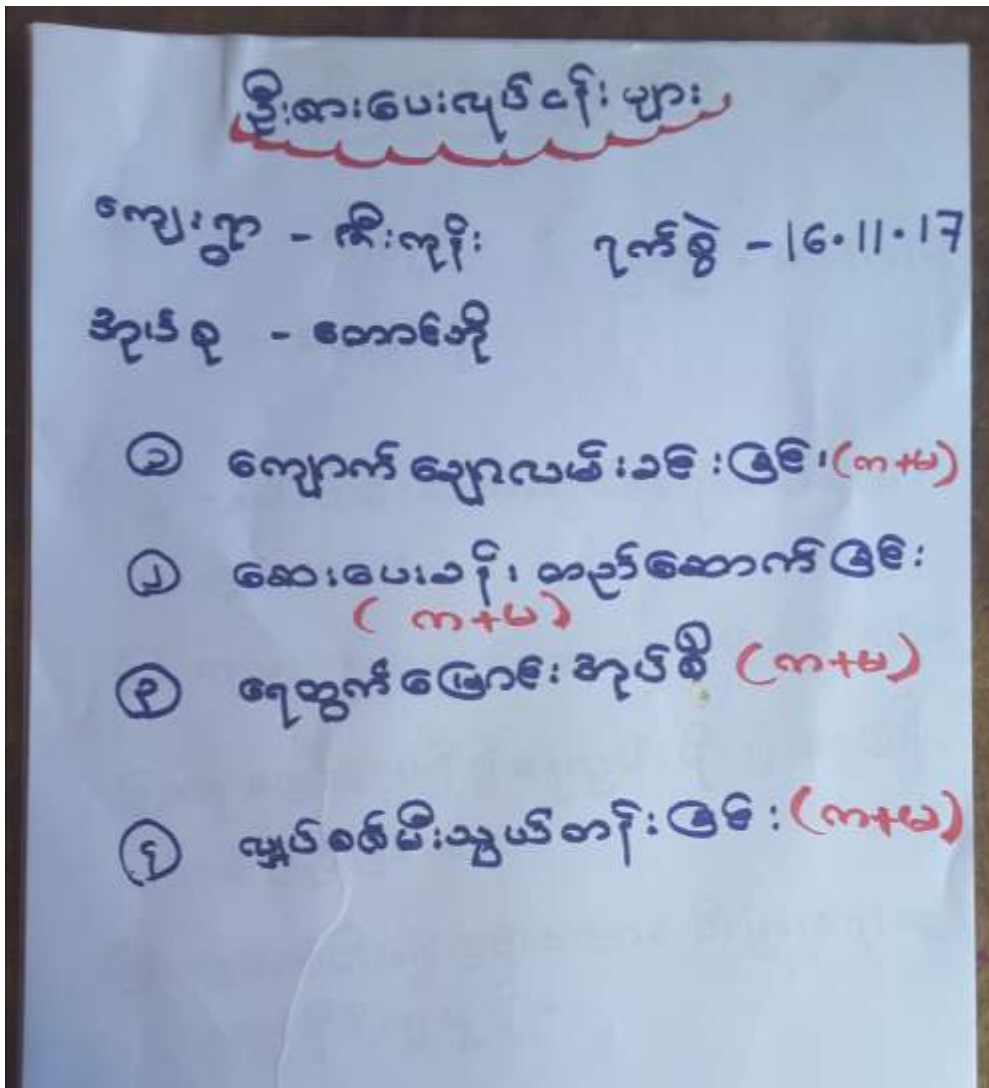 ဦးစားပေးလုပ်ငန်းများ
ကျေးရွာ - ကီးကုန်း ရက်စွဲ - 16.11.17
အုပ်စု - တောင်ဘို
၁ ကျောက်ချောလမ်းခင်းခြင်း (က+မ)
၂ ဆေးပေးခန်း တည်ဆောက်ခြင်း
(က+မ)
၃ ရေထွက်မြောင်းအုပ်စီ (က+မ)
၄ လျှပ်စစ်မီးသွယ်တန်းခြင်း (က+မ)